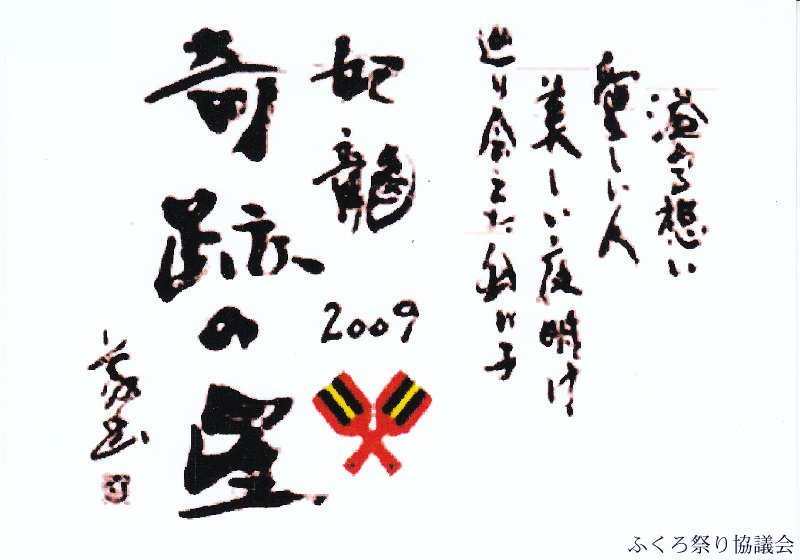 溢れる想い
愛しい人
美しい夜明け
巡り会えた我が子
妃龍
2009
奇跡の星
ふくろ祭り協議会